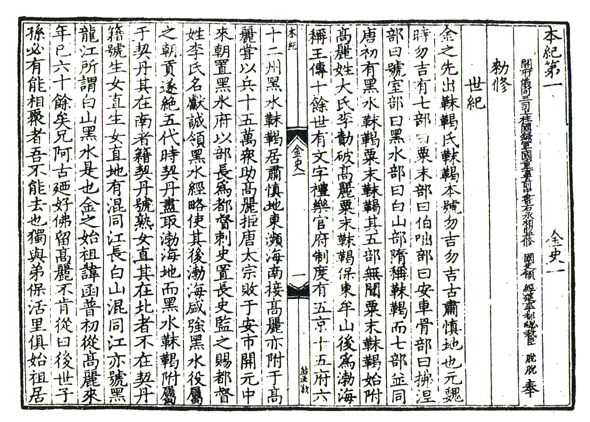 本紀第一 金史一
開府儀同三司上柱國錄軍國重事前中書右丞相監修國史領經筵事都總裁臣脫脫奉
勑修
世紀
金之先出靺鞨氏靺鞨本號勿吉勿吉古肅慎地也元魏
時勿吉有七部曰粟末部曰伯咄部曰安車骨部曰拂湼
部曰號室部曰黑水部曰白山部隋稱靺鞨而七部並同
唐初有黑水靺鞨粟末靺鞨其五部無聞粟末靺鞨始附
高麗姓大氏李勣破高麗粟末靺鞨保東牟山後為渤海
稱王傳十餘世有文字禮樂官府制度有五京十五府六
金史一
一
本紀
十二州黑水靺鞨居肅慎地東瀕海南接高麗亦附于高
麗嘗以兵十五萬衆助高麗拒唐太宗敗于安市開元中
來朝置黑水府以部長為都督刺史置長史監之賜都督
姓李氏名獻誠領黑水經略使其後渤海盛強黑水役屬
之朝貢遂絶五代時契丹盡取渤海地而黑水靺鞨附屬
于契丹其在南者籍契丹號熟女直其在北者不在契丹
籍號生女直生女直地有混同江長白山混同江亦號黑
龍江所謂白山黑水是也金之始祖諱函普初從高麗來
年已六十餘矣兄阿古廼好佛留高麗不肯從曰後世子
孫必有能相聚者吾不能去也獨與弟保活里俱始祖居